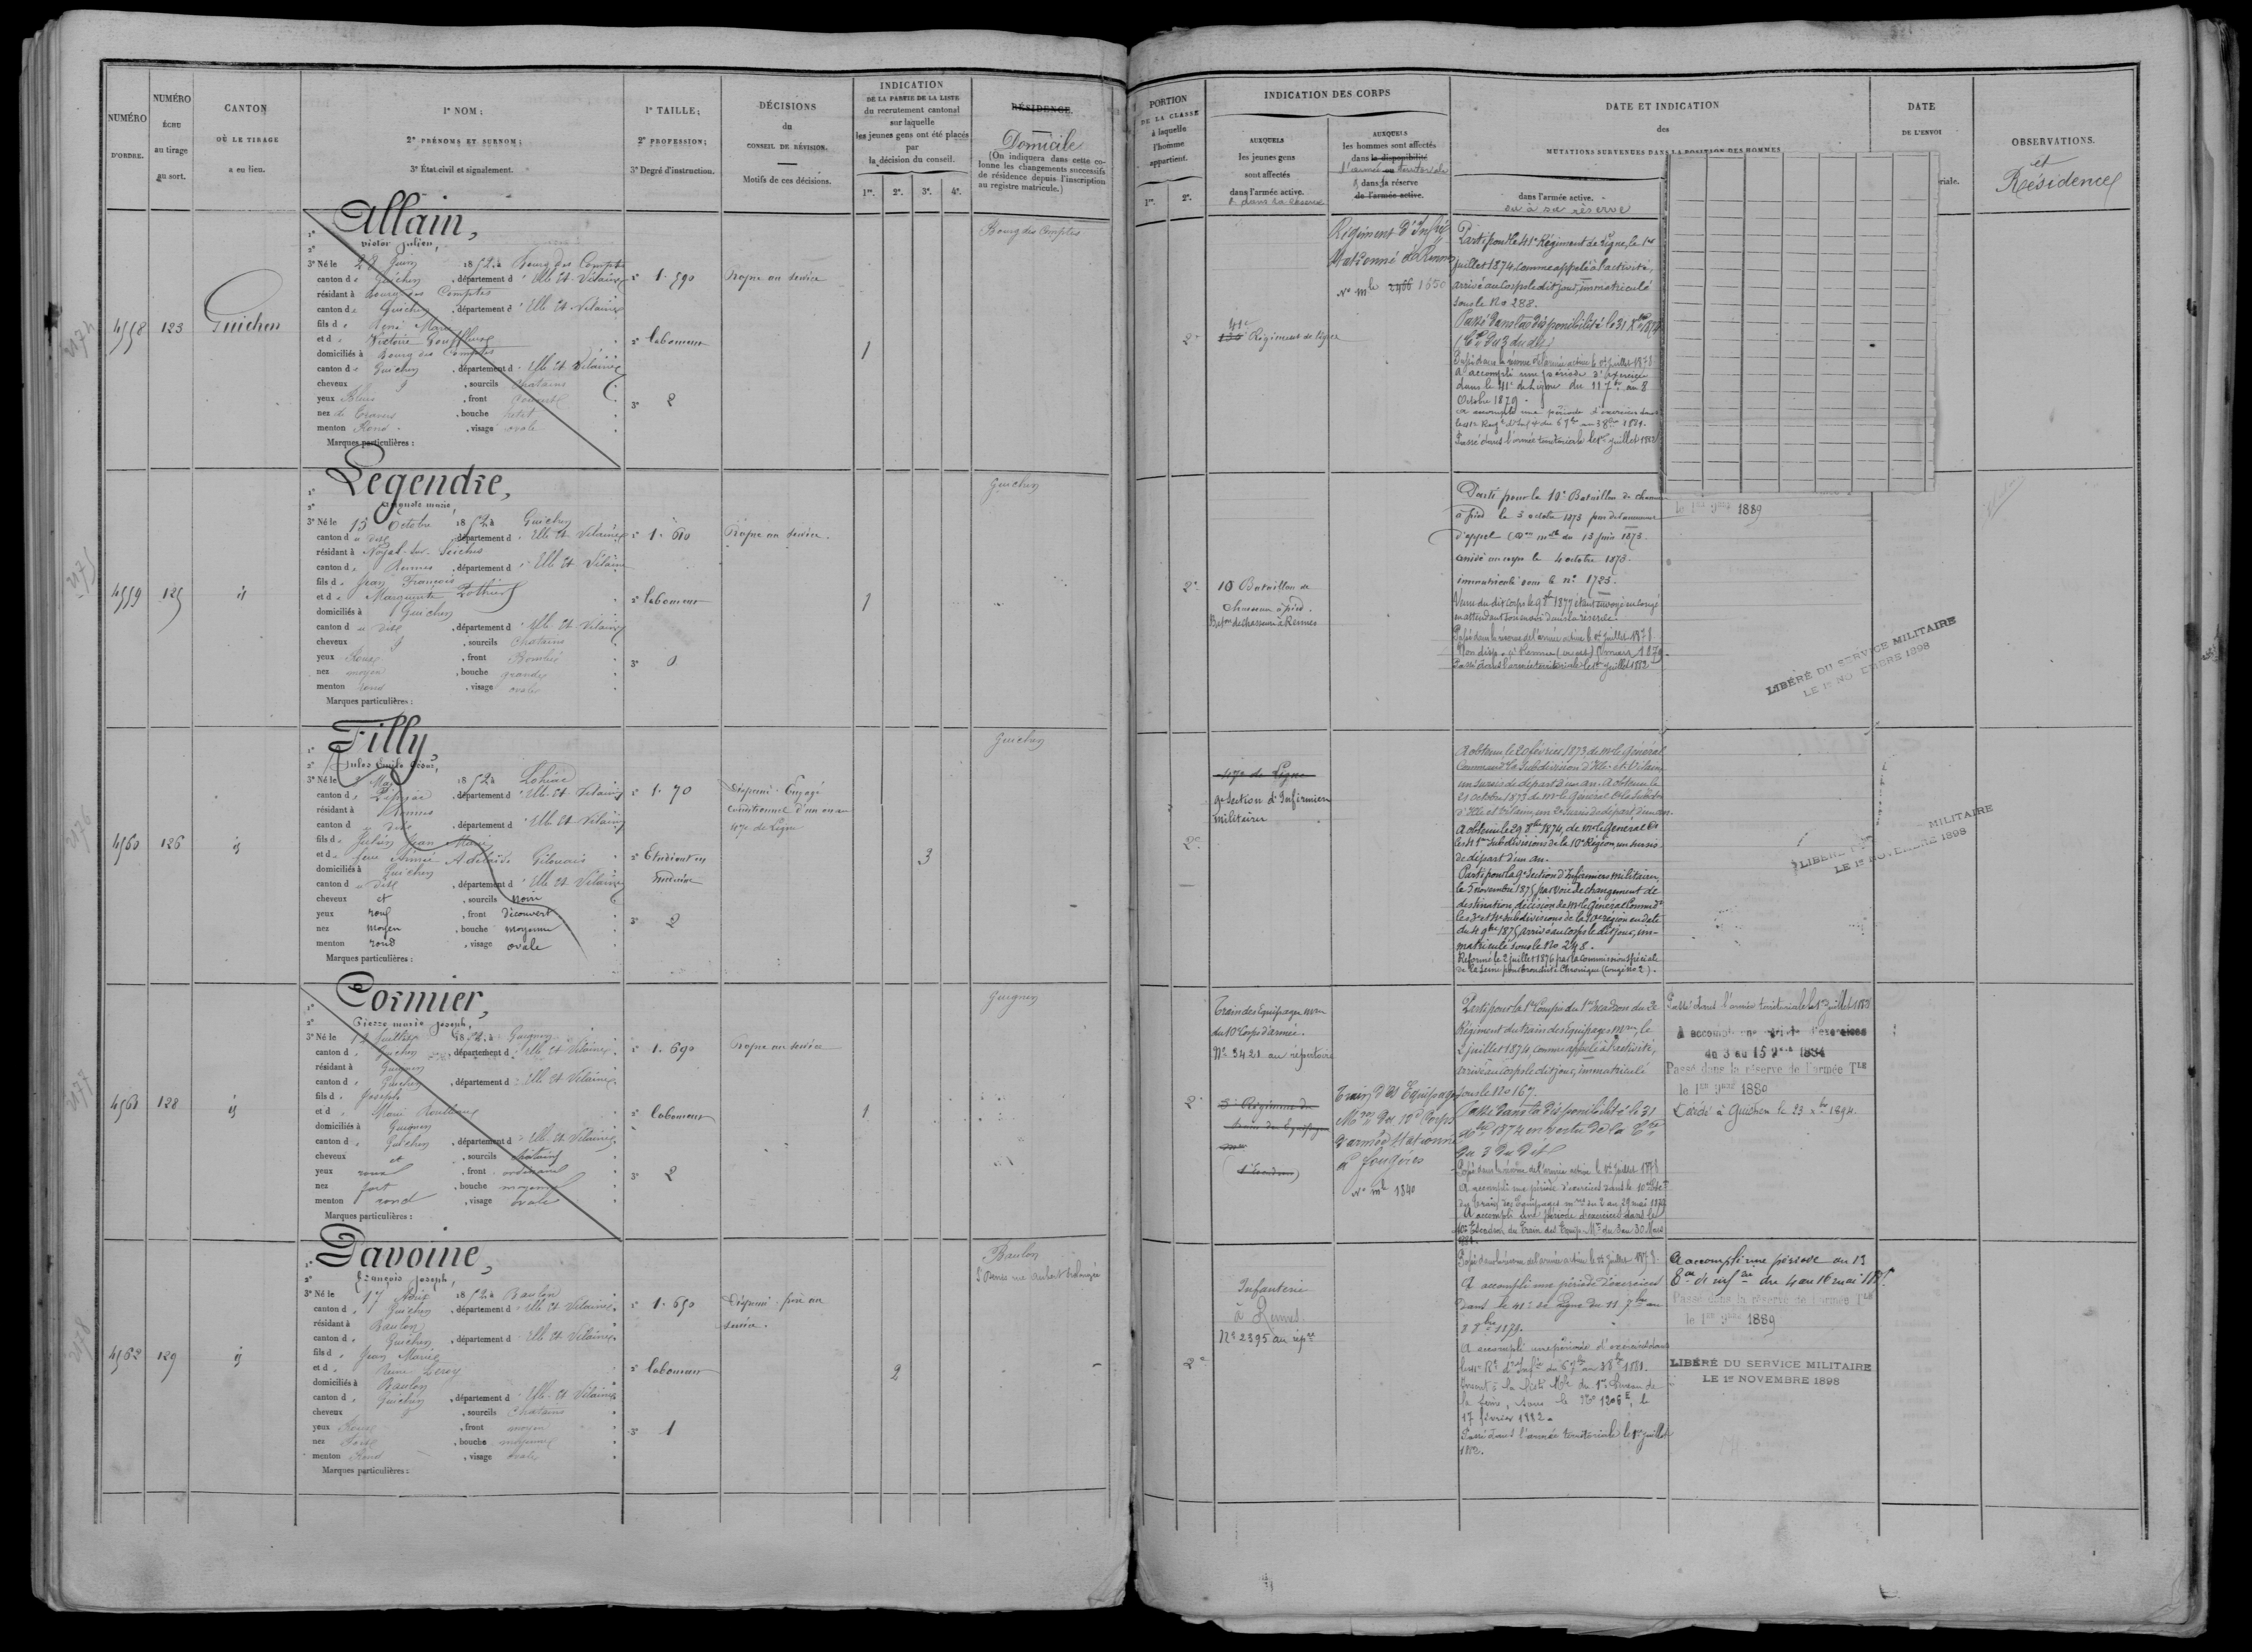 NUMÉRO
D'ORDRE.
NUMÉRO
ÉCHU
au tirage
au sort.
CANTON
OÙ LE TIRAGE
a eu lieu.
1º NOM;
2º PRÉNOMS ET SURNOM;
3º État civil et signalement.
1º TAILLE;
2º PROFESSION;
3º Degré d'instruction.
DÉCISIONS
du
CONSEIL DE RÉVISION.
Motifs de ces décisions.
INDICATION
DE LA PARTIE DE LA LISTE
du recrutement cantonal
sur laquelle
les jeunes gens ont été placés
par
la décision du conseil.
1re. 2e. 3e. 4e.
RÉSIDENCE.
Domicile
(On indiquera dans cette co-
lonne les changements successifs
de résidence depuis l'inscription
au registre matricule.)
4558
123
Guichen
Allain,
Victor Julien,
3º Né le 28 Juin 1852 à Bourg des Comptes
canton de Guichen, département d'Ille et Vilaine
résidant à Bourg des Comptes
canton de Guichen, département d'Ille et Vilaine
fils de René Marie
et d Victoire
domiciliés à Bourg des Comptes
canton de Guichen, département d'Ille et Vilaine
cheveux et, sourcils chatains
yeux Bleus, front
nez, bouche petite
menton Rond, visage ovale
Marques particulières :
1. 590
laboureur
2
Propre au service
1
Bourg des Comptes
4559
125
id
Legendre,
Auguste marie,
3º Né le 15 Octobre 1852 à Guichen
canton du dit, département d'Ille et Vilaine
résidant à Noyal-sur-Seiche
canton de Rennes, département d'Ille et Vilaine
fils de Jean François
et de Marguerite Pothier
domiciliés à Guichen
canton du dit, département d'Ille et Vilaine
cheveux et, sourcils chatains
yeux Roux, front Bombé
nez moyen, bouche grande
menton rond, visage ovale
Marques particulières :
1. 610
laboureur
0
Propre au service.
1
Guichen
4560
126
id
Filly,
Jules Emile César,
3º Né le Mai 1852 à Lohéac
canton de Pipriac, département d'Ille et Vilaine
résidant à Rennes
canton du dit, département d'Ille et Vilaine
fils de Julien Jean Marie
et de feue Aimée Adélaïde
domiciliés à Guichen
canton du dit, département d'Ille et Vilaine
cheveux et, sourcils noirs
yeux roux, front découvert
nez moyen, bouche moyenne
menton rond, visage ovale
Marques particulières :
1. 70
Etudiant en
médecine
2
Dispensé. Engagé
conditionnel d'un an au
47e de Ligne
3
Guichen
4561
128
id
Cormier,
Pierre marie Joseph,
3º Né le Juillet 1852 à Guignen
canton de Guichen, département d'Ille et Vilaine
résidant à Guignen
canton de Guichen, département d'Ille et Vilaine
fils de Joseph
et de Marie
domiciliés à Guignen
canton de Guichen, département d'Ille et Vilaine
cheveux et, sourcils chatains
yeux roux, front ordinaire
nez fort, bouche moyenne
menton rond, visage ovale
Marques particulières :
1. 690
laboureur
2
Propre au service
1
Guignen
4562
129
id
Davoine,
François Joseph,
3º Né le 17 Août 1852 à Baulon
canton de Guichen, département d'Ille et Vilaine
résidant à Baulon
canton de Guichen, département d'Ille et Vilaine
fils de Jean Marie
et de Reine Leroy
domiciliés à Baulon
canton de Guichen, département d'Ille et Vilaine
cheveux et, sourcils chatains
yeux Roux, front moyen
nez, bouche moyenne
menton Rond, visage ovale
Marques particulières :
1. 650
laboureur
1
Dispensé. frère au
service.
2
Baulon
2174
2175
2176
2177
2178
PORTION
DE LA CLASSE
à laquelle
l'homme
appartient.
1re. 2e.
INDICATION DES CORPS
AUXQUELS
les jeunes gens
sont affectés
dans l'armée active.
& dans la réserve
AUXQUELS
les hommes sont affectés
dans la disponibilité
l'armée territoriale
& dans la réserve
de l'armée active.
DATE ET INDICATION
des
MUTATIONS SURVENUES DANS LA POSITION DES HOMMES
dans l'armée active.
ou à sa réserve
DATE
DE L'ENVOI
riale.
OBSERVATIONS.
et
Résidence
2e
41e
Régiment de ligne
Régiment d'Infie
Stationné à Rennes
No mle 2466 1650
Parti pour le 41e Régiment de Ligne, le 1er
juillet 1874 comme appelé à l'activité,
arrivé au Corps le dit jour, immatriculé
sous le No 288.
Passé dans la disponibilité le 31
Passé dans la réserve de l'armée active le 1er juillet 1878
A accompli une période d'exercices
dans le 41e de Ligne du 11 7bre au 8
Octobre 1879.
Passé dans l'armée territoriale le 1er juillet 1882
2e
10 Bataillon de
chasseurs à pied.
Baton de chasseurs à Rennes
Parti pour le 10e Bataillon de chasseurs
à pied le 3 octobre 1873
arrivé au corps le 4 octobre 1873
immatriculé sous le no. 1725.
en attendant son envoi dans la réserve.
Passé dans la réserve de l'armée active le 1er juillet 1878
Passé dans l'armée territoriale le 1er juillet 1882
1889
LIBÉRÉ DU SERVICE MILITAIRE
LE 1er NOVEMBRE 1898
2e
47e de Ligne
9e Section d'Infirmiers
militaires
A obtenu, le 20 février 1873 de Mr le Général
Commandt la Subdivision d'Ille-et-Vilaine
un sursis de départ d'un an. A obtenu le
21 octobre 1873 de Mr le Général Ct la Subdivision
d'Ille et Vilaine, un 2e sursis de départ d'un an.
A obtenu le 29 8bre 1874, de Mr le Général Ct
les 3e et 4e subdivisions de la 10e Région, un sursis
de départ d'un an.
Parti pour la 9e Section d'Infirmiers militaires,
le 5 novembre 1875 par voie de changement de
destination, décision de Mr le Général Command
les 3e et 4e subdivisions de la 10e région en date
du 4 9bre 1875, arrivé au corps le dit jour, im-
matriculé sous le No 248.
Réformé le 2 juillet 1876 par la Commission spéciale
de la Seine pour bronchite chronique (Congé no 2).
LIBÉRÉ MILITAIRE
LE 1er NOVEMBRE 1898
2e
Train des Equipages mres
du 10e Corps d'armée.
No 3421 au répertoire
Train des Equipages
Mres du 10e Corps
d'armée Stationné
à Fougères
No mle 1840
Parti pour la 1re Compie du 1er Escadron du 2e
Régiment du train des Equipages Mres, le
2 juillet 1874, comme appelé à l'activité,
arrivé au corps le dit jour, immatriculé
sous le No 167.
Passé dans la disponibilité le 31
1874 en vertu de la
du 3 du dit
Passé dans la réserve de l'armée active le 1er juillet 1878
A accompli une période d'exercices dans le 10e
du Train des Equipages mres du 2 au 29 mai 1879
A accompli une période d'exercices dans le
10e Escadron du Train des Equip. Mres du 3 au 30 Mars
1881.
Passé dans l'armée territoriale le 1er juillet 1883
A accompli une période d'exercices
du 3 au 15 1884
Passé dans la réserve de l'armée Tle
le 1er 9bre 1880
Décédé à Guichen le 23 1894.
2e
Infanterie
à Rennes.
No 2395 au répre
Passé dans la réserve de l'armée active le 1er juillet 1878
A accompli une période d'exercices
dans le 41e de ligne du 11 7bre au
8 8bre 1879.
A accompli une période d'exercices dans
le 41e Rt d'Infie du 6 7bre au 3 8bre 1881.
Inscrit à la liste Mle du 1er Bureau de
la Seine, sous le No 1206 E, le
17 février 1882.
Passé dans l'armée territoriale le 1er juillet
1882.
A accompli une période au 13
du 4 au 16 mai 1885
Passé dans la réserve de l'armée Tle
le 1er 9bre 1889
LIBÉRÉ DU SERVICE MILITAIRE
LE 1er NOVEMBRE 1898